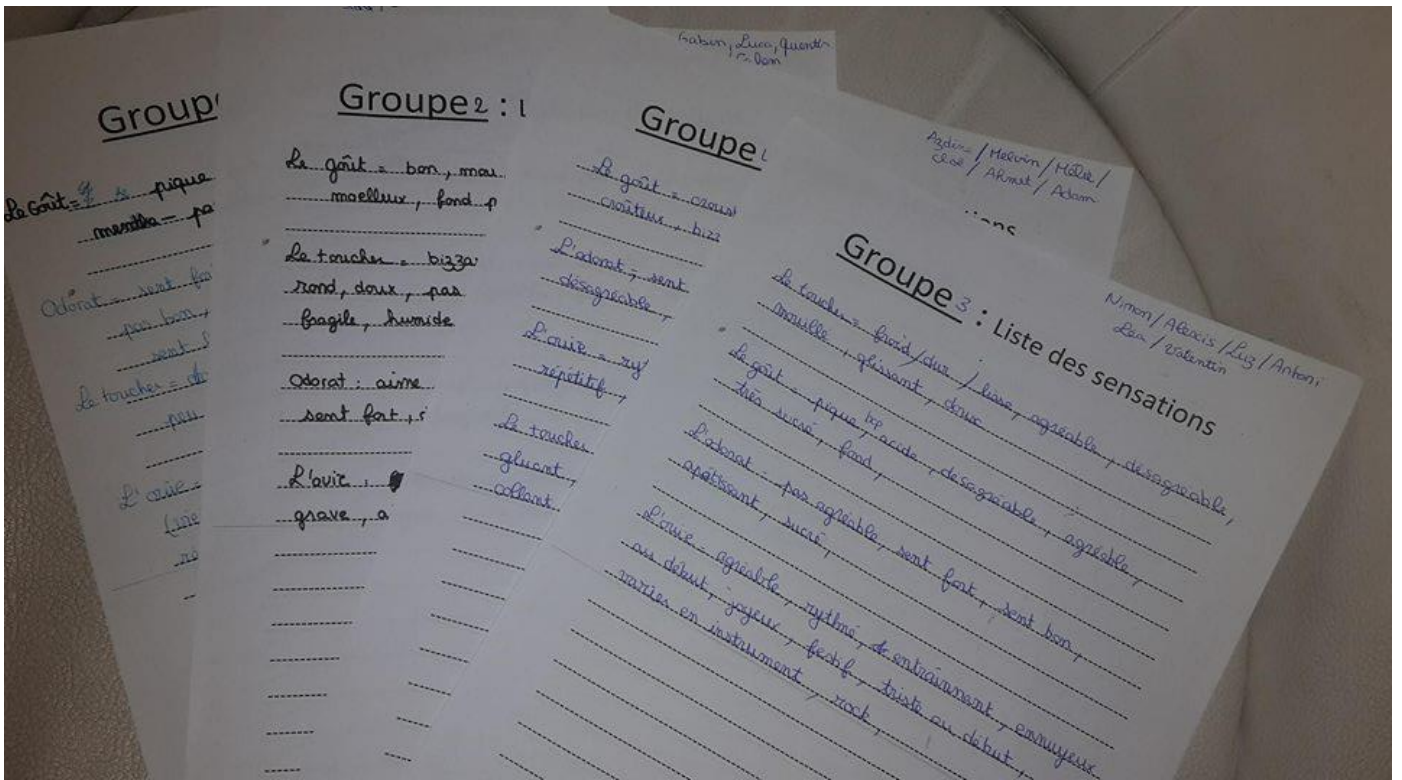 Groupe
Le Goût = pique
menthe - pa
Odorat = sent foi
pas bon,
sent f
Le toucher =
peu
L'ouïe =
Groupe 2 : l
Le goût = bon, mou
moelleux, fond p
Le toucher = bizza
rond, doux, pas
fragile, humide
Odorat : aime
sent fort, s
L'ouie :
grave, a
Gabin, Luca, Quentin
Groupe
Le goût = crous
croûteux, bizz
L'odorat = sent
désagréable,
L'ouïe = ry
répétitif,
Le toucher
gluant,
collant
/ Melvin / Hélie /
/ Ahmet / Adam
ions
Ninon / Alexis / Luz / Antoni
Léa / Valentin
Groupe 3 : Liste des sensations
Le toucher = froid / dur / lisse, agréable, désagréable,
mouille, glissant, doux
Le goût = pique, acide, désagréable, agréable,
très sucré, froid,
L'odorat = pas agréable, sent fort, sent bon,
apétissant, sucré,
L'ouïe = agréable, rythmé, entraînnant, ennuyeux
au début, joyeux, festif, triste au début,
varier en instrument, rock,